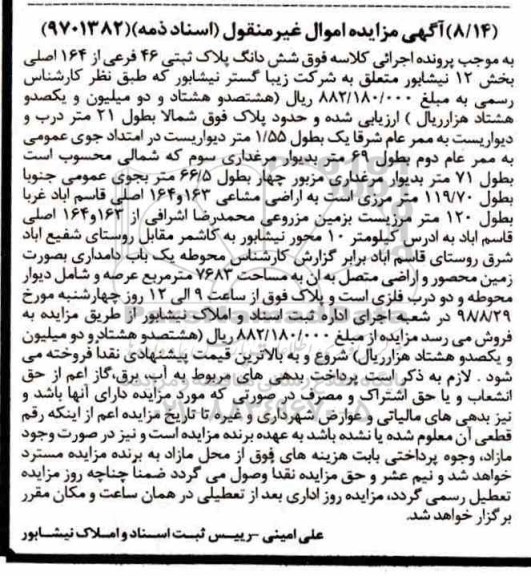 (۸/۱۴)آگهی مزایده اموال غیرمنقول (اسناد ذمه)(۹۷۰۱۳۸۲)
به موجب پرونده اجرائی کلاسه فوق شش دانگ پلاک ثبتی ۴۶ فرعی از ۱۶۴ اصلی
بخش ۱۲ نیشابور متعلق به شرکت زیبا گستر نیشابور که طبق نظر کارشناس
رسمی به مبلغ ۸۸۲/۱۸۰/۰۰۰ ریال (هشتصدو هشتاد و دو میلیون و یکصدو
هشتاد هزارریال ) ارزیابی شده و حدود پلاک فوق شمالا بطول ۲۱ متر درب و
دیواریست به ممر عام شرقا یک بطول ۱/۵۵ متر دیواریست در امتداد جوی عمومی
به ممر عام دوم بطول ۶۱ متر بدیوار مرغداری سوم که شمالی محسوب است
بطول ۷۱ متر بدیوار مرغداری مزبور چهار بطول ۶۶/۵ متر بجوی عمومی جنوبا
بطول ۱۱۹/۷۰ متر مرزی است به اراضی مشاعی ۱۶۳و۱۶۴ اصلی قاسم اباد غربا
بطول ۱۲۰ متر مرزیست بزمین مزروعی محمدرضا اشرافی از ۱۶۳و۱۶۴ اصلی
قاسم اباد به ادرس کیلومتر ۱۰ محور نیشابور به کاشمر مقابل روستای شفیع اباد
شرق روستای قاسم اباد برابر گزارش کارشناس محوطه یک باب دامداری بصورت
زمین محصور و اراضی متصل به ان به مساحت ۷۶۸۳ مترمربع عرصه و شامل دیوار
محوطه و دو درب فلزی است و پلاک فوق از ساعت ۹ الی ۱۲ روز چهارشنبه مورخ
۹۸/۸/۲۹ در شعبه اجرای اداره ثبت اسناد و املاک نیشابور از طریق مزایده به
فروش می رسد مزایده از مبلغ ۸۸۲/۱۸۰/۰۰۰ ریال (هشتصدو هشتادو دو میلیون
و یکصدو هشتاد هزارریال) شروع و به بالاترین قیمت پیشنهادی نقدا فروخته می
شود . لازم به ذکر است پرداخت بدهی های مربوط به آب، برق،گاز اعم از حق
انشعاب و یا حق اشتراک و مصرف در صورتی که مورد مزایده دارای آنها باشد و
نیز بدهی های مالیاتی و عوارض شهرداری و غیره تا تاریخ مزایده اعم از اینکه رقم
قطعی آن معلوم شده یا نشده باشد به عهده برنده مزایده است و نیز در صورت وجود
مازاد، وجوه پرداختی بابت هزینه های فوق از محل مازاد به برنده مزایده مسترد
خواهد شد و نیم عشر و حق مزایده نقدا وصول می گردد ضمنا چناچه روز مزایده
تعطیل رسمی گردد، مزایده روز اداری بعد از تعطیلی در همان ساعت و مکان مقرر
برگزار خواهد شد.
علی امینی -رییس ثبت اسناد و املاک نیشابور